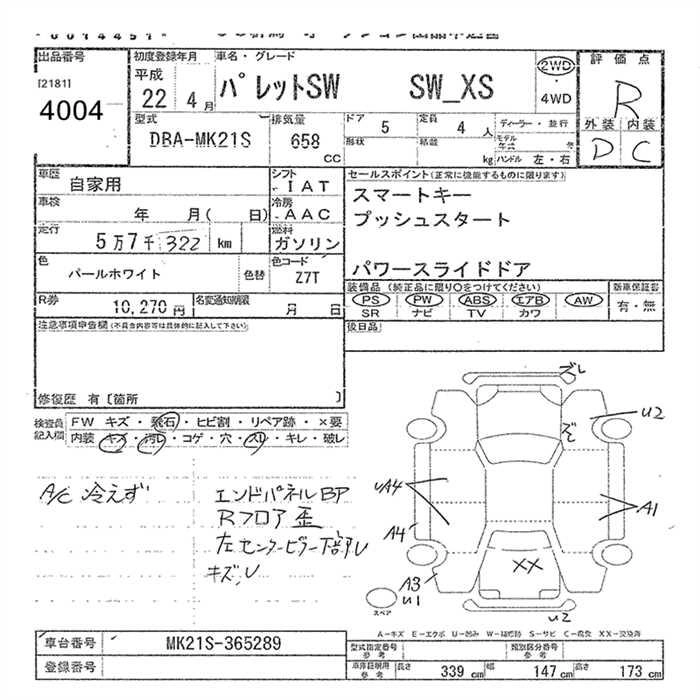 出品番号
[2181]
4004
初度登録年月
平成
22 4月
車名・グレード
パレットSW SW_XS
2WD
4WD
評価点
R
外装 内装
D C
型式
DBA-MK21S
排気量
658
CC
ドア 5
定員 4 人
形状
積載
kg
ディーラー・並行
モデル年式 年
ハンドル 左・右
車歴
自家用
シフト
IAT
車検
年 月( 日)
冷房
AAC
走行
5万7千322 km
燃料
ガソリン
色
パールホワイト
色替
色コード
Z7T
R券
10,270円
名変通知期限
月 日
セールスポイント(正常に機能するものに限ります)
スマートキー
プッシュスタート
パワースライドドア
装備品(純正品に限り○をつけてください)
PS PW ABS エアB AW
SR ナビ TV カワ
新車保証書
有・無
後日品
注意事項申告欄(不具合内容等は具体的に記入して下さい)
修復歴 有〔箇所 〕
検査員記入欄
FW キズ・飛石・ヒビ割・リペア跡・×要
内装・キズ・汚レ・コゲ・穴・スレ・キレ・破レ
A/C 冷えず
エンドパネルBP
Rフロア歪
左センターピラー下部U
キズ,U
ズレ
U2
UA4
A1
A4
A3
U1
XX
U2
スペア
A-キズ E-エクボ U-凹ミ W-補修跡 S-サビ C-腐食 XX-交換済
車台番号
MK21S-365289
登録番号
型式指定番号
参考
類別区分番号
参考
車庫証明用
参考
長さ 339 cm
幅 147 cm
高さ 173 cm